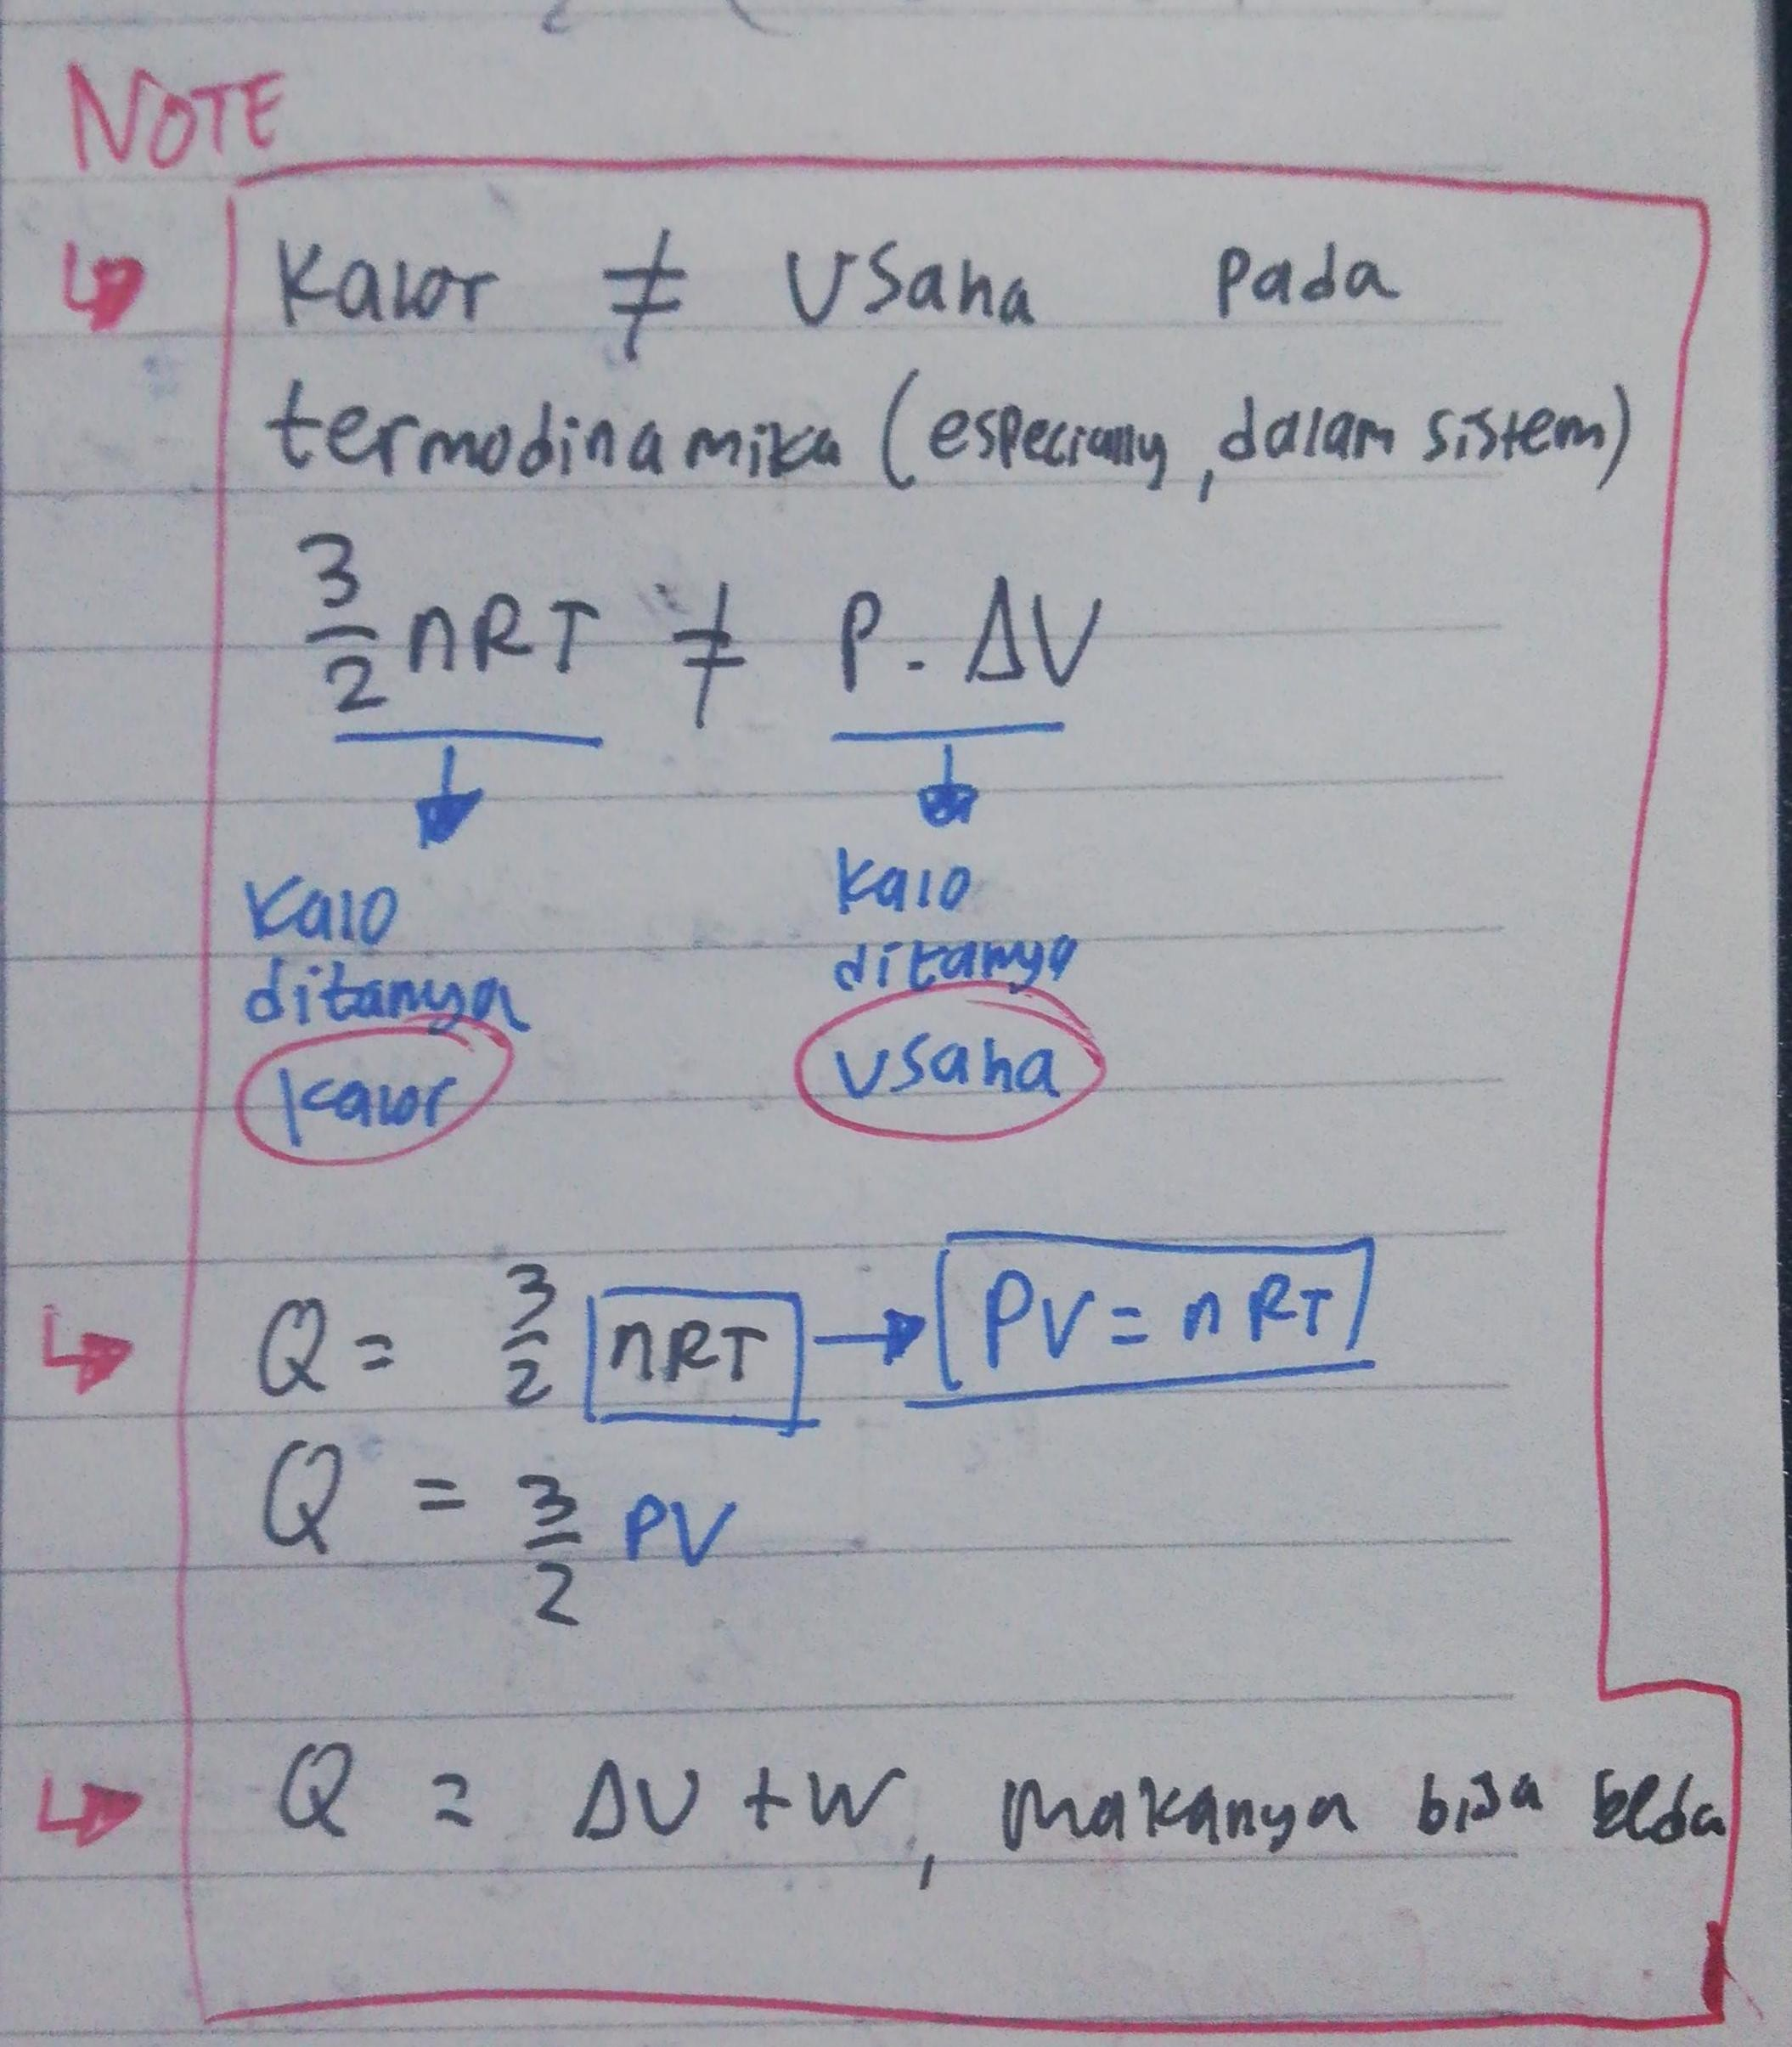 NOTE
Kalor ≠ Usaha pada
termodinamika (especially, dalam sistem)
3/2 nRT ≠ P. ΔV
Kalo Kalo
ditanya ditanya
kalor usaha
Q = 3/2 nRT → PV = nRT
Q = 3/2 PV
Q = ΔU + W, makanya bisa beda